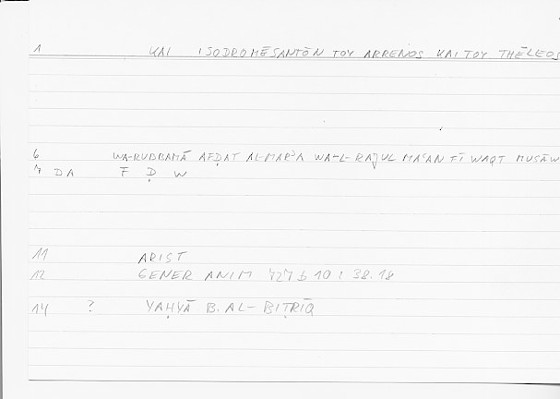 1 KAI ISODROMĒSANTŌN TOY ARRENOS KAI TOY THĒLEOS
6 WA-RUBBAMĀ AFḌAT AL-MARʾA WA-L-RAǦUL MAʿAN FĪ WAQT MUSĀW
7 DA F Ḍ W
11 ARIST
12 GENER ANIM 727 b 10 : 38.18
14 ? YAḤYĀ B. AL-BIṬRĪQ